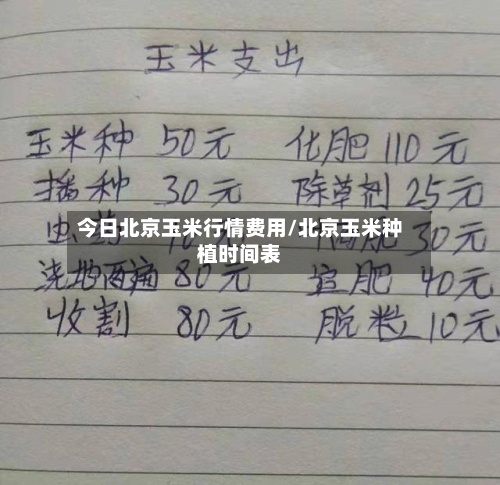 玉米支出
玉米种 50元 化肥 110元
播种 30元 除草剂 25元
今日北京玉米行情费用/北京玉米种
植时间表
虫药 30元
浇地两遍 80元 追肥 40元
收割 80元 脱粒 10元